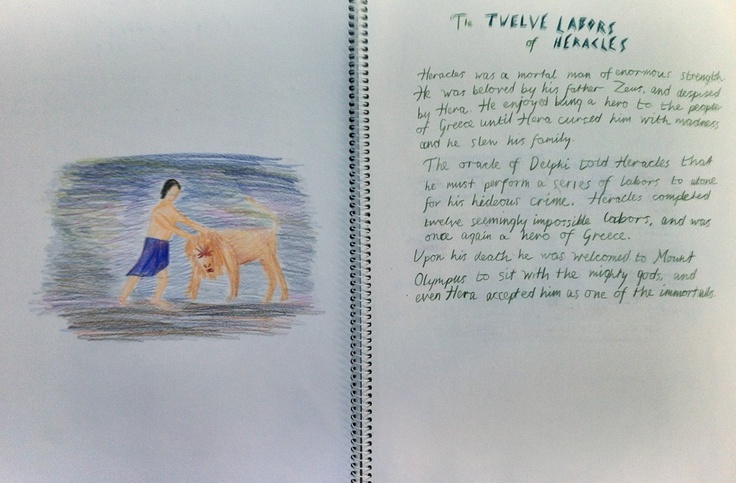 The TWELVE LABORS
of HERACLES
Heracles was a mortal man of enormous strength.
He was beloved by his father Zeus, and despised
by Hera. He enjoyed being a hero to the people
of Greece until Hera cursed him with madness
and he slew his family.
The oracle of Delphi told Heracles that
he must perform a series of labors to atone
for his hideous crime. Heracles completed
twelve seemingly impossible labors, and was
once again a hero of Greece.
Upon his death he was welcomed to Mount
Olympus to sit with the mighty gods, and
even Hera accepted him as one of the immortals.